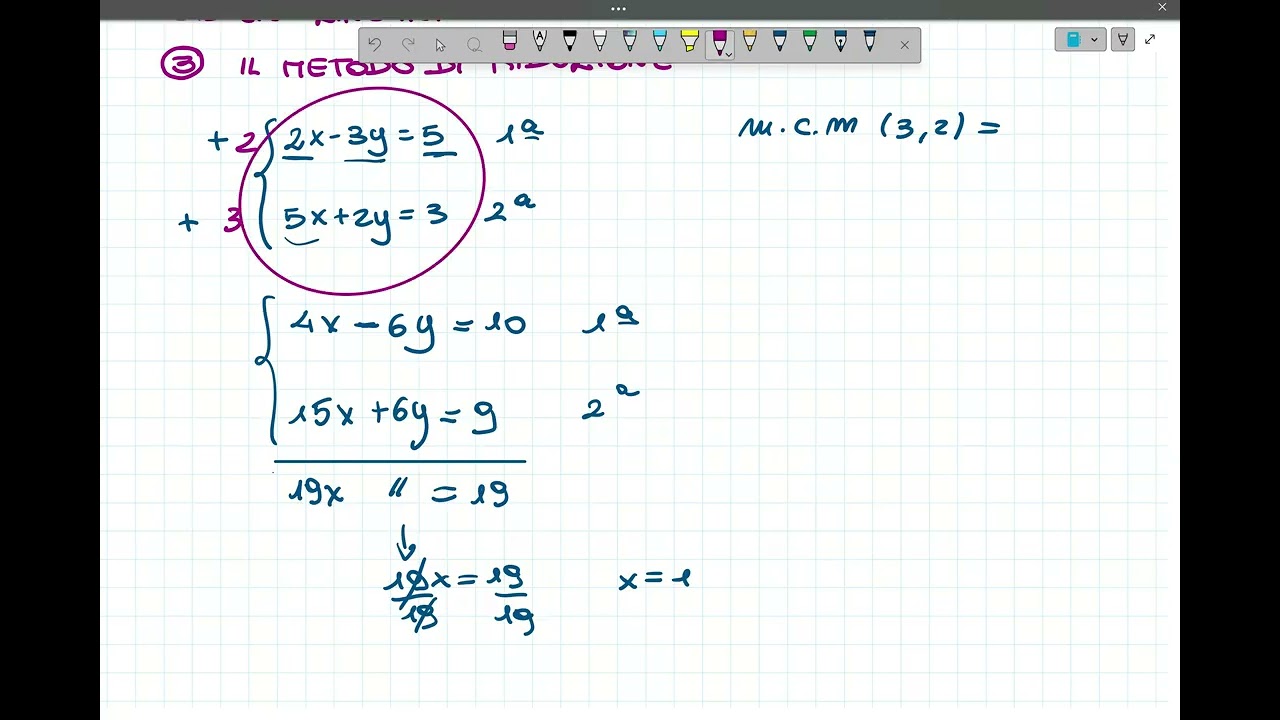 ③ IL METODO DI RIDUZIONE
+2 2x-3y=5 1ª
+ 3 5x+2y=3 2ª
m.c.m (3,2) =
4x-6y=10 1ª
15x+6y=9 2ª
19x // =19
↓
19x/19=19/19 x=1